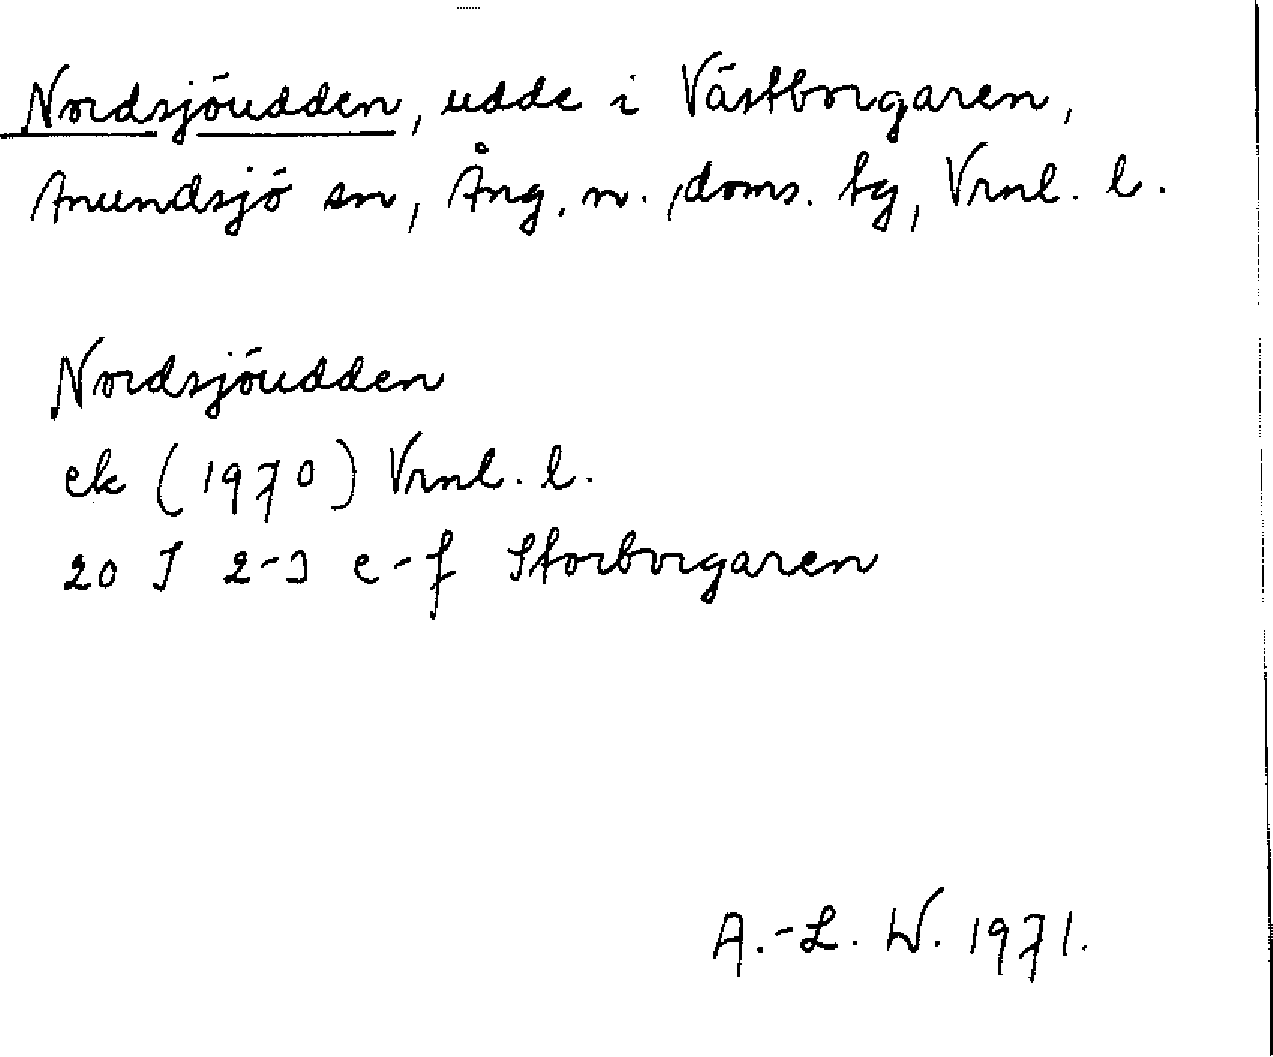 Nordsjöudden, udde i Västborgaren,
Anundsjö sn, Ång. n. doms. tg, Vrnl. l.
Nordsjöudden
ek (1970) Vrnl. l.
20 I 2-3 e-f Storborgaren
A.-L. W. 1971.